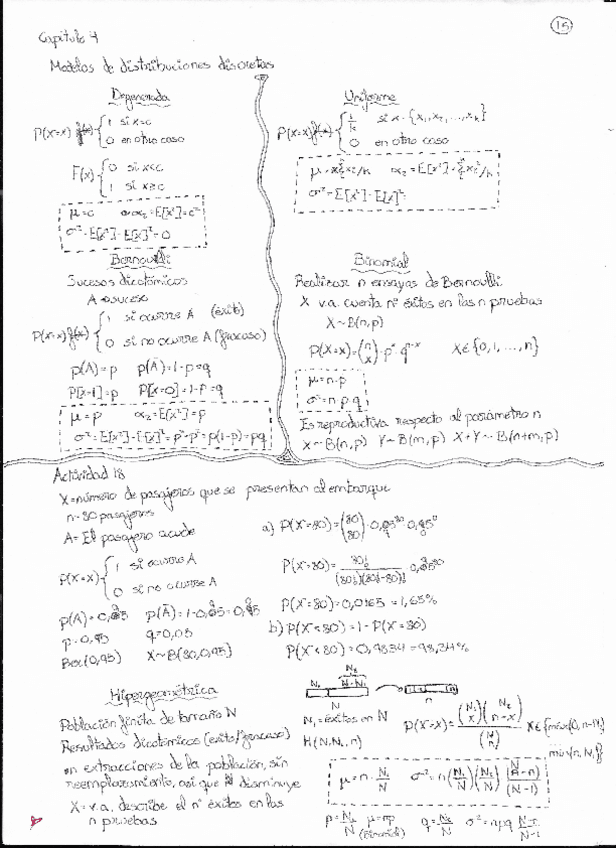 15
Capítulo 4
Modelos de distribuciones discretas
Degenerada
P(X=x) f(x) { 1 si x=c
0 en otro caso
F(x) { 0 si x<c
1 si x≥c
μ=c α₂=E[x²]=c²
σ²=E[x²]-E[x]²=0
Uniforme
P(X=x) { 1/k si x={x₁,x₂,...,xₖ}
0 en otro caso
σ²=E[x²]-E[x]²=
Bernoulli
Sucesos dicotómicos
A=suceso
P(X=x) f(x) { 1 si ocurre A (éxito)
0 si no ocurre A (fracaso)
p(A)=p p(Ā)=1-p=q
P[x=1]=p P[x=0]=1-p=q
μ=p α₂=E[x²]=p
σ²=E[x²]-E[x]²=p-p²=p(1-p)=pq
Binomial
Realizar n ensayos de Bernoulli
X v.a. cuenta nº éxitos en las n pruebas
X~B(n,p)
P(X=x)=(n x)·pˣ·qⁿ⁻ˣ X∈{0,1,...,n}
μ=n·p
σ²=n·p·q
Es reproductiva respecto al parámetro n
X~B(n,p) Y~B(m,p) X+Y~B(n+m,p)
Actividad 18
X=número de pasajeros que se presentan al embarque
n=80 pasajeros
A=El pasajero acude
P(X=x) { 1 si ocurre A
0 si no ocurre A
p=0,95 q=0,05
Ber(0,95) X~B(80,0,95)
P(X=80)=0,0165=1,65%
b) P(X<80)=1-P(X=80)
P(X<80)=0,9834=98,34%
Hipergeométrica
Población finita de tamaño N
Resultados dicotómicos (éxito/fracaso)
n extracciones de la población, sin
reemplazamiento, así que N disminuye
X=v.a. describe el nº éxitos en las
n pruebas
N₁ N₂
N-N₁
N n
N₁=éxitos en N
H(N,N₁,n)
P(X=x)=(N₁ x)(N₂ n-x)/(N n)
μ=n·N₁/N σ²=n(N₁/N)(N₂/N)(N-n)/(N-1)
p=N₁/N μ=np
(binomial)
q=N₂/N σ²=npq N-n/N-1